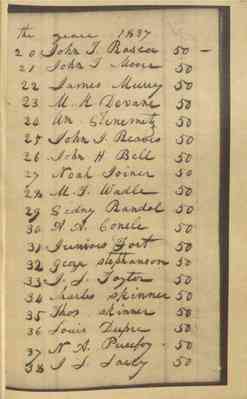 the year 1837
20 John J. Rascoe 50 -
21 John J Moore 50
22 James Murry 50
23 M. K Devane 50
24 Wm. 50
25 John J. Beaves 50
26 John H Bell 50
27 Noah Joiner 50
28 M. J. Wadle 50
29 Sedny Randol 50
30 A. A. 50
31 Junious Fort 50
32 Geoge stephanson 50
33 J. J. Taylor 50
34 Charles skinner 50
35 Thos skinner 50
36 Louis Dupre 50
37 N A. Purefoy 50
38 J J. 50